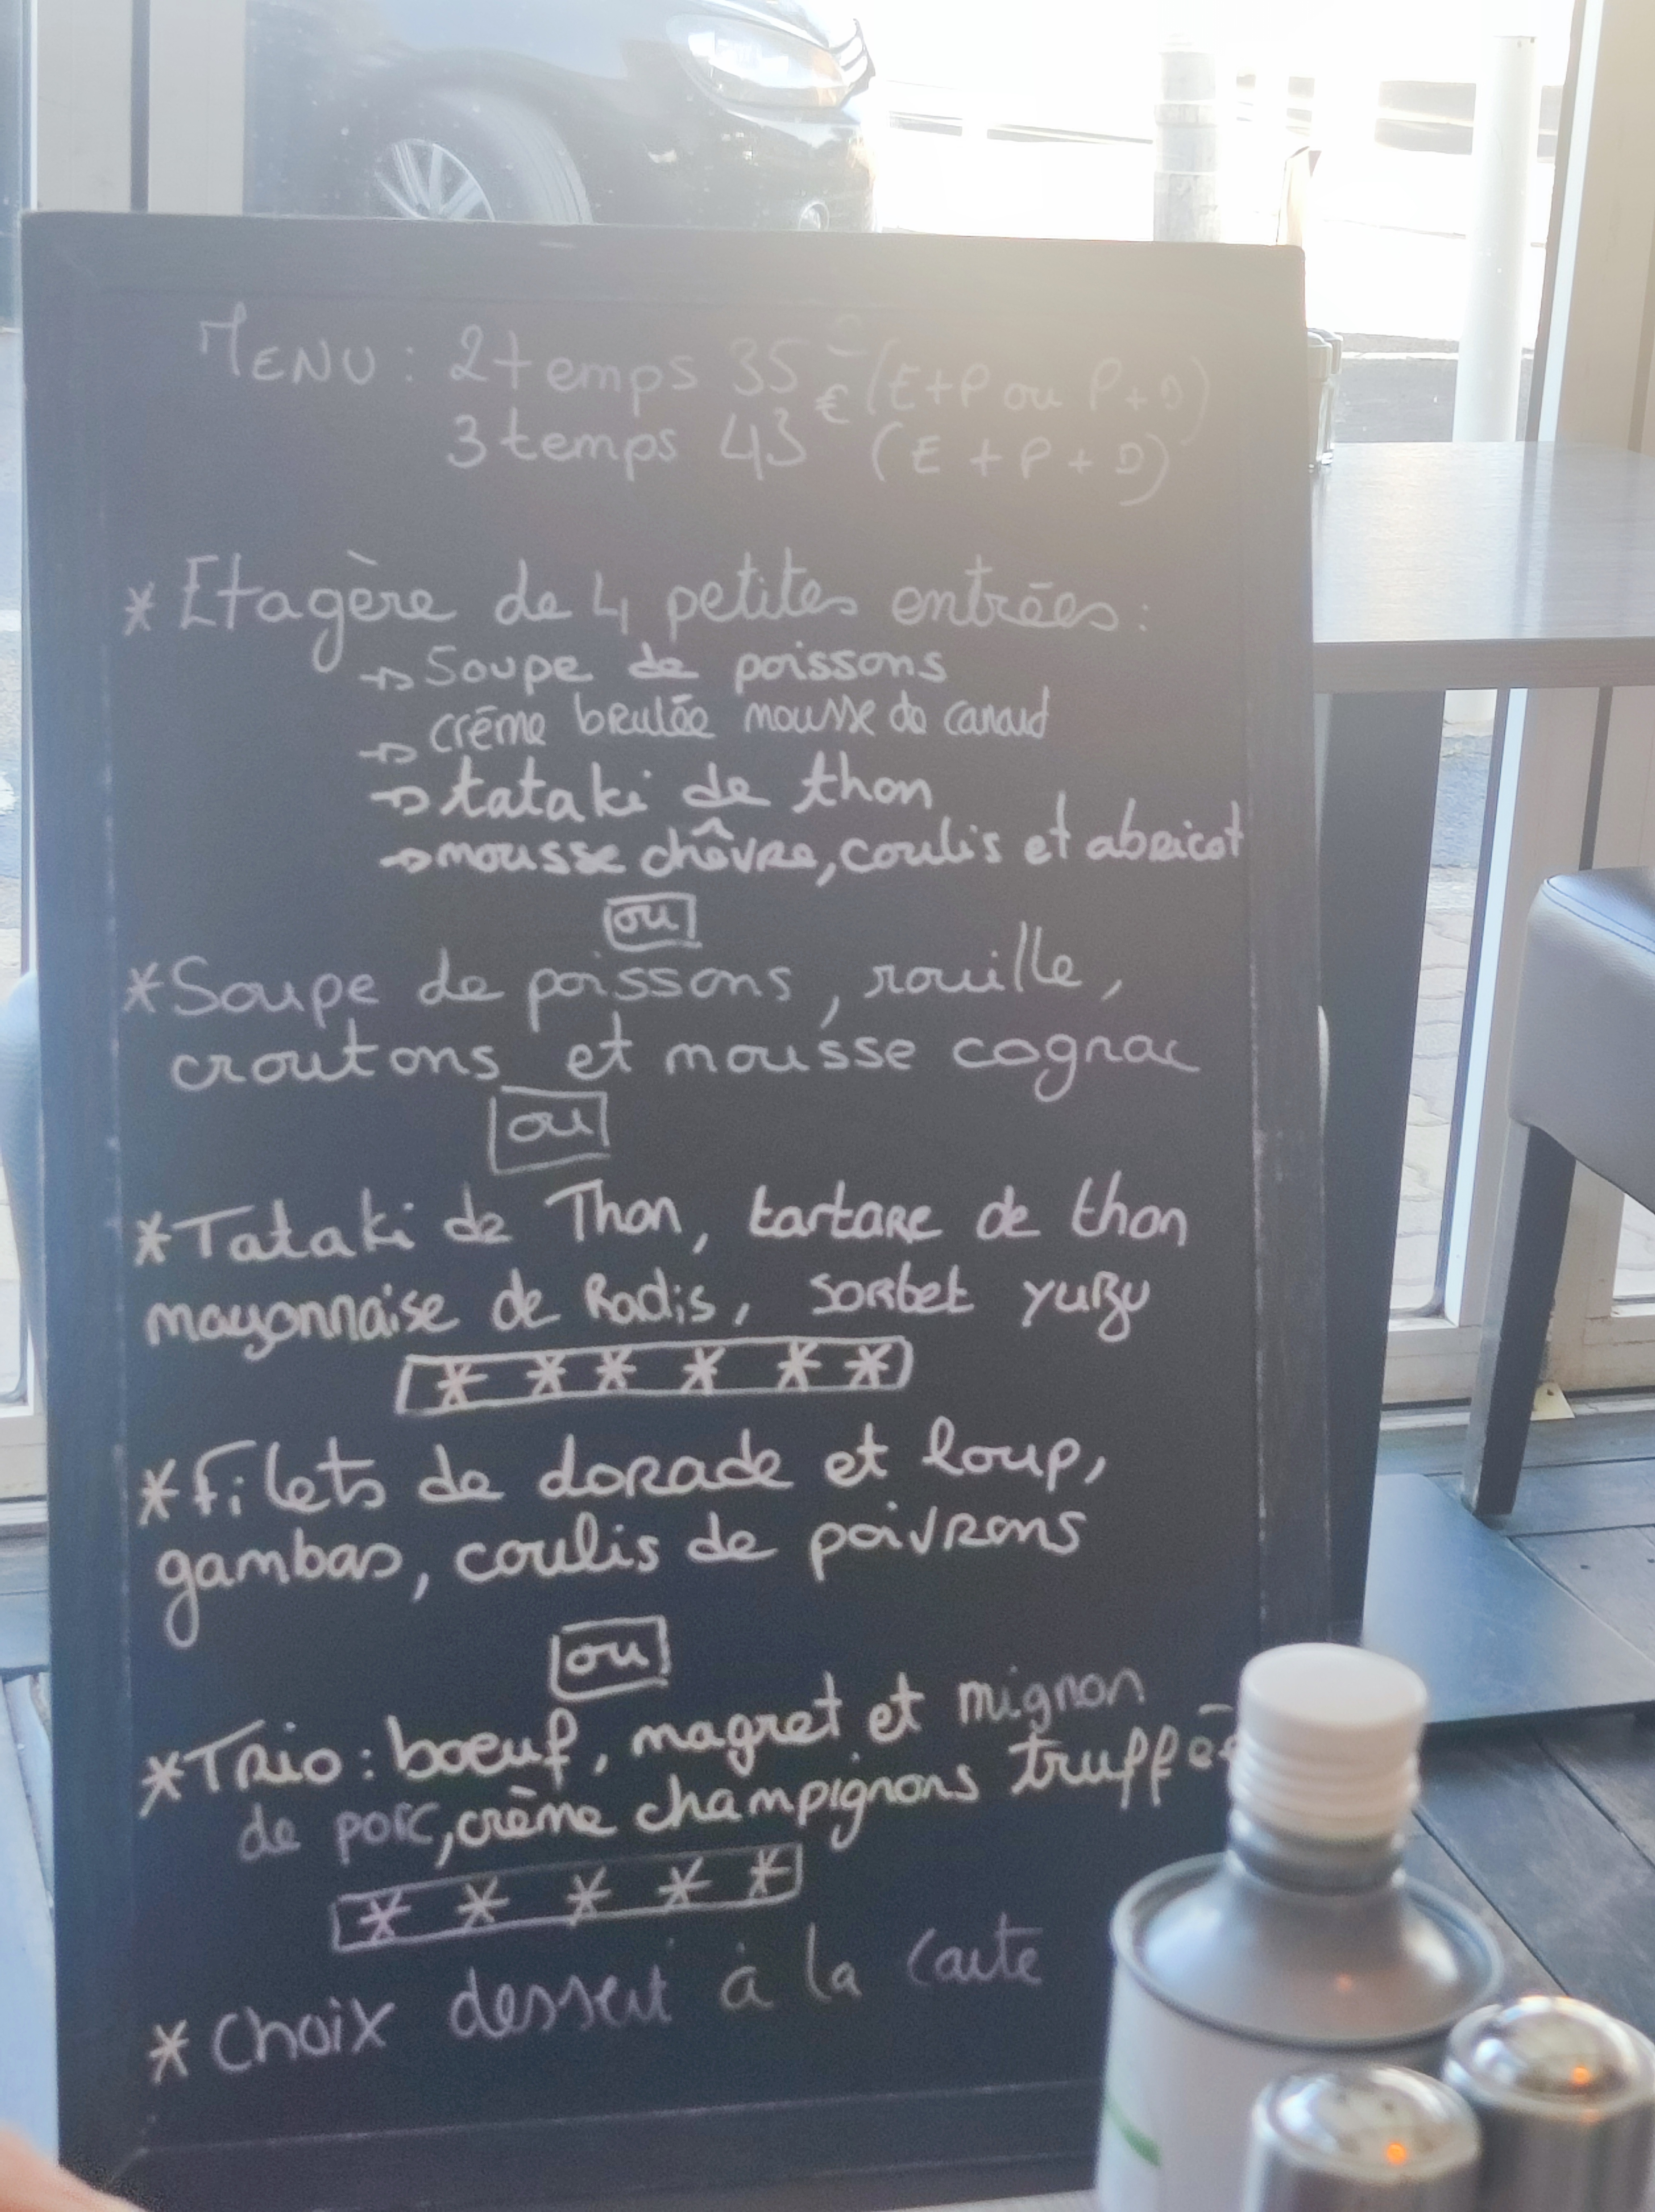 MENU : 2 temps 35€ (E+P ou P+D)
3 temps 43€ (E+P+D)
* Etagère de 4 petites entrées :
→ Soupe de poissons
→ crème brulée mousse de canard
→ tataki de thon
→ mousse chèvre, coulis et abricot
ou
* Soupe de poissons, rouille,
croutons et mousse cognac
ou
* Tataki de Thon, tartare de thon
mayonnaise de Radis, sorbet yuzu
* * * * * *
* Filets de dorade et loup,
gambas, coulis de poivrons
ou
* Trio : boeuf, magret et mignon
de porc, crème champignons
* * * * *
* Choix dessert à la carte